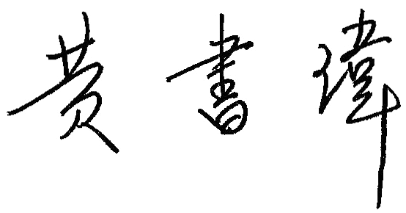 黄書瑋